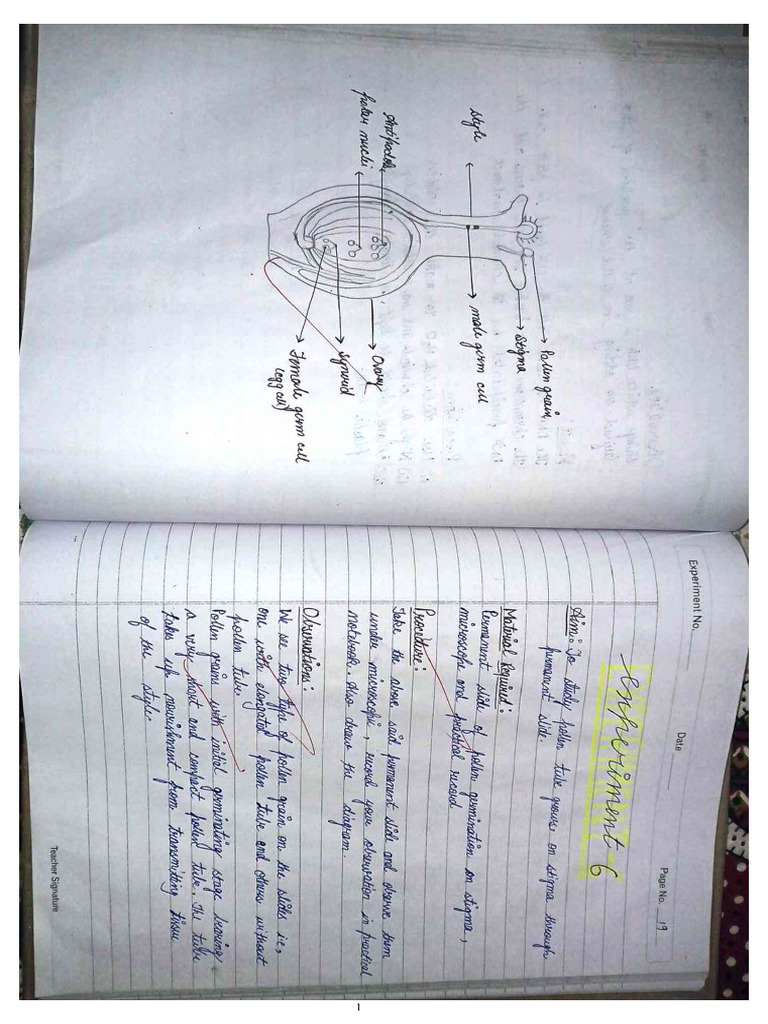 Style
Antipodal
polar nuclei
Pollen grain
Stigma
male germ cell
Ovary
synerid
Female germ cell
(egg cell)
Experiment No.
Date
Page No. 19
experiment-6
Aim: To study pollen tube grows on stigma through
permanent slide.
Material Required:
Permanent slide of pollen germination on stigma,
microscope and practical record
Procedure:
Take the above said permanent slide and observe them
under microscope, record your observation in practical
notebook. Also draw the diagram.
Observations:
We see two type of pollen grain on the slides i.e,
one with elongated pollen tube and others without
pollen tube.
Pollen grains with initial germinating stage bearing
a very short and compact pollen tube. The tube
takes up nourishment from transmitting tissue
of the style.
Teacher Signature
1